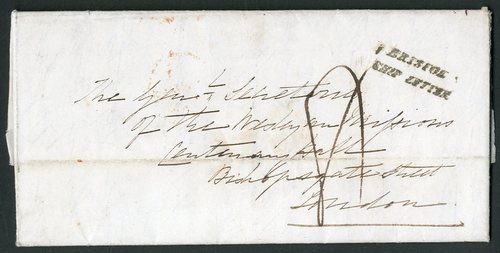 BRISTOL
SHIP LETTER
The Genl. Secretary
of the Wesleyan Missions
Centenary Hall
Bishopsgate Street
London